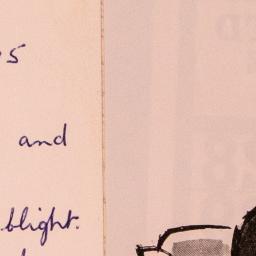 5
and
blight.